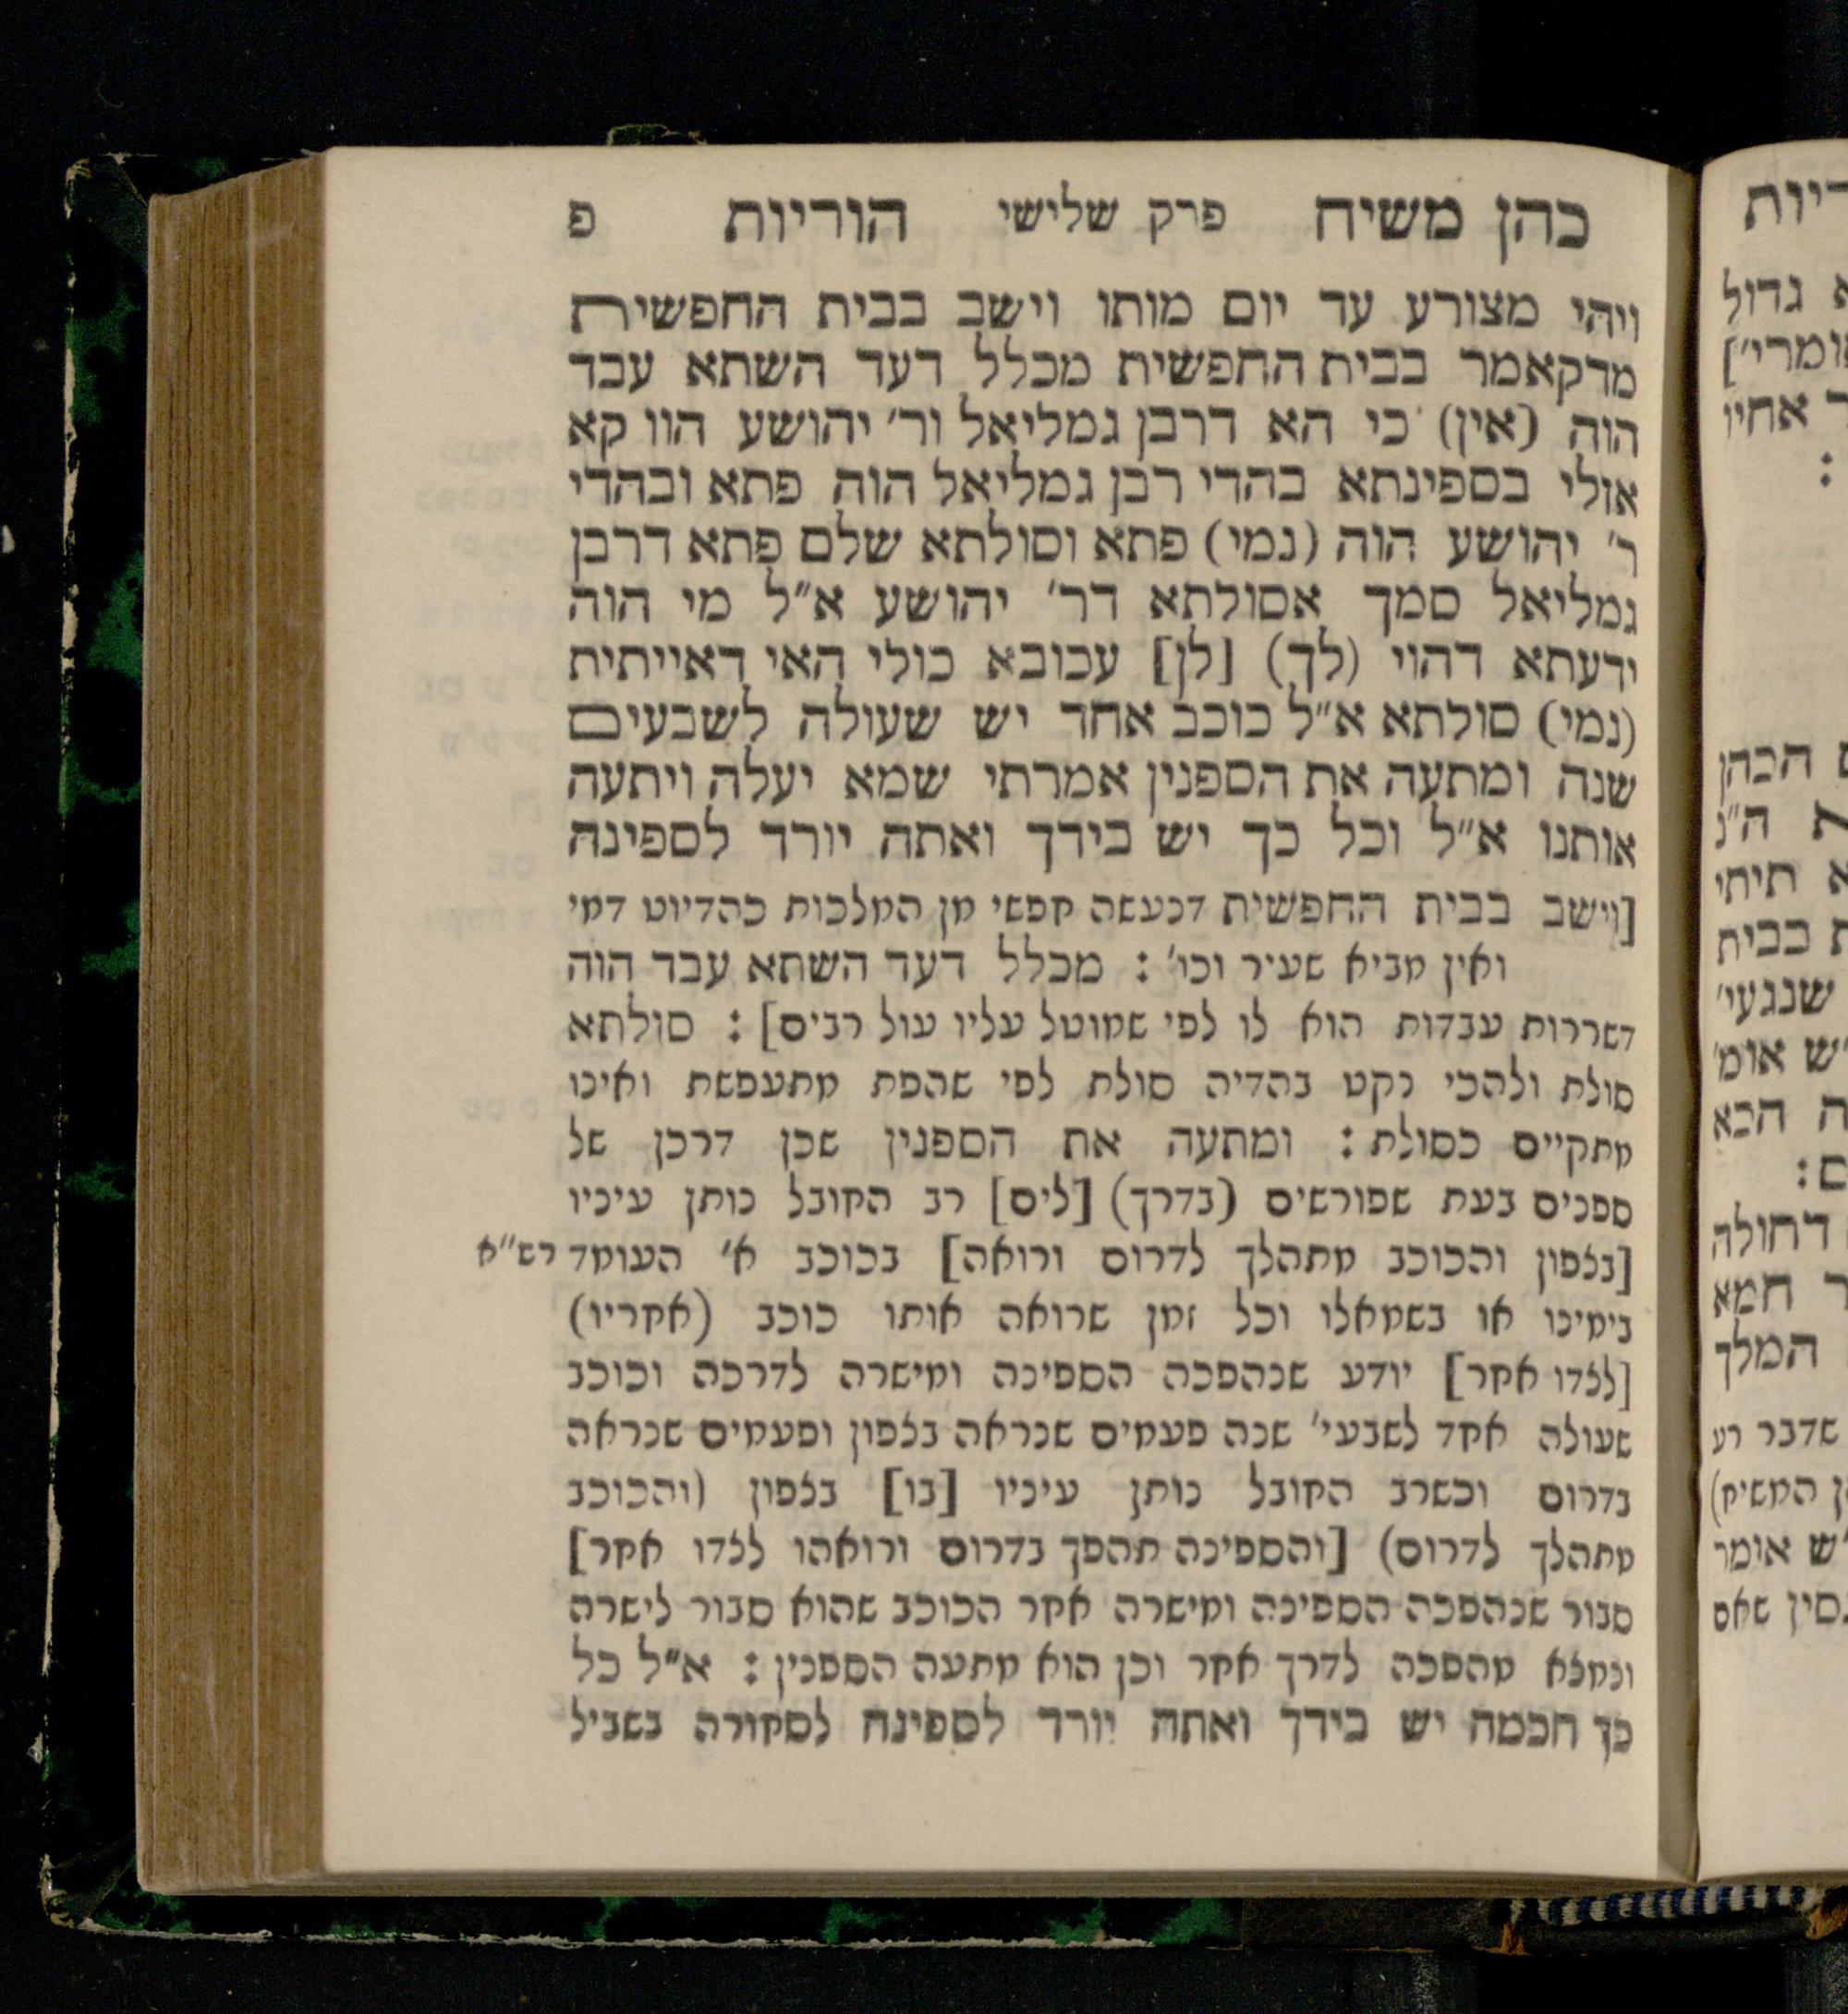 כהן משיח פרק שלישי הוריות פ
ויהי מצורע עד יום מותו וישב בבית החפשית
מדקאמר בבית החפשית מכלל דעד השתא עבד
הוה (אין) כי הא דרבן גמליאל ור׳ יהושע הוו קא
אזלי בספינתא בהדי רבן גמליאל הוה פתא ובהדי
ר׳ יהושע הוה (נמי) פתא וסולתא שלם פתא דרבן
גמליאל סמך אסולתא דר׳ יהושע א״ל מי הוה
ידעתא דהוי (לך) [לן] עכובא כולי האי דאייתית
(נמי) סולתא א״ל כוכב אחד יש שעולה לשבעים
שנה ומתעה את הספנין אמרתי שמא יעלה ויתעה
אותנו א״ל וכל כך יש בידך ואתה יורד לספינה
[וישב בבית החפשית דנעשה חפשי מן המלכות כהדיוט דמי
ואין מביא שעיר וכו׳ : מכלל דעד השתא עבד הוה
דשררות עבדות הוא לו לפי שמוטל עליו עול רבים] : סולתא
סולת ולהכי נקט בהדיה סולת לפי שהפת מתעפשת ואינו
מתקיים כסולת : ומתעה את הספנין שכן דרכן של
ספנים בעת שפורשים (בדרך) [לים] רב החובל נותן עיניו
[בצפון והכוכב מתהלך לדרום ורואה] בכוכב א׳ העומד רש״א
בימינו או בשמאלו וכל זמן שרואה אותו כוכב (אחריו)
[לצדו אחר] יודע שנהפכה הספינה ומישרה לדרכה וכוכב
שעולה אחד לשבעי׳ שנה פעמים שנראה בצפון ופעמים שנראה
בדרום וכשרב החובל נותן עיניו [בו] בצפון (והכוכב
מתהלך לדרום) [והספינה תהפך בדרום ורואהו לצדו אחר]
סבור שנהפכה הספינה ומישרה אחר הכוכב שהוא סבור לישרה
ונמצא מהפכה לדרך אחר וכן הוא מתעה הספנין : א״ל כל
כך חכמה יש בידך ואתה יורד לספינה לסחורה בשביל